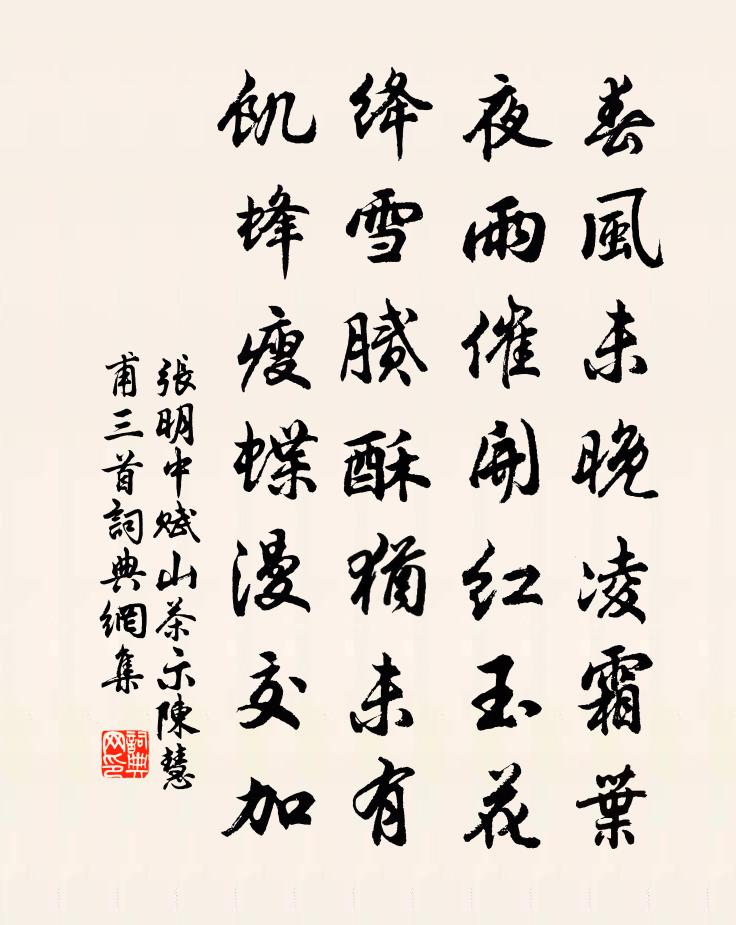 春風未晚凌霜葉
夜雨催開紅玉花
絳雪膩酥猶未有
飢蜂瘦蝶漫交加
張明中賦山茶示陳慧
甫三首詞典網集
詞典
网印